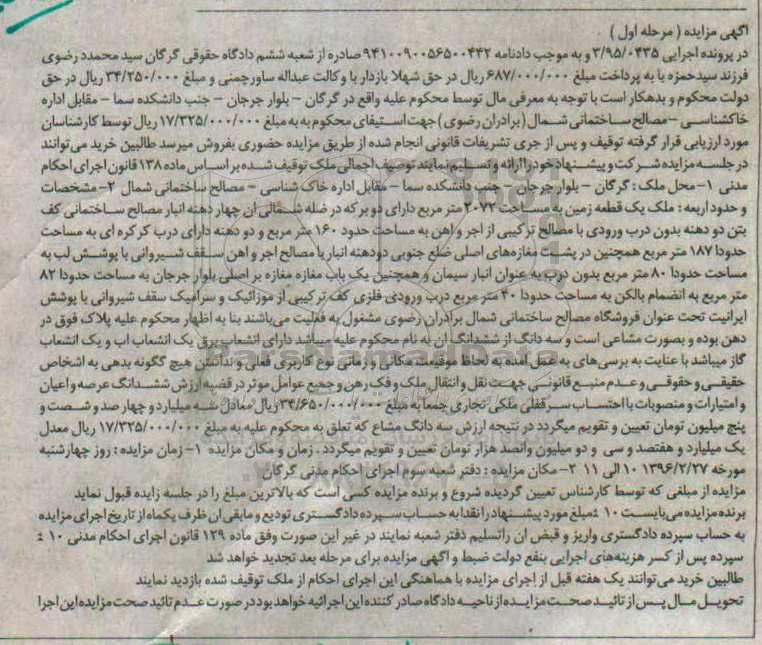 آگهی مزایده ( مرحله اول )
در پرونده اجرایی ۳/۹۵/۰۴۳۵ و به موجب دادنامه ۹۴۱۰۰۹۰۰۵۶۵۰۰۴۴۲ صادره از شعبه ششم دادگاه حقوقی گرگان سید محمدد رضوی
فرزند سیدحمزه با به پرداخت مبلغ ۶۸۷/۰۰۰/۰۰۰ ریال در حق شهلا بازدار با وکالت عبداله ساورچمنی و مبلغ ۳۴/۲۵۰/۰۰۰ ریال در حق
دولت محکوم و بدهکار است با توجه به معرفی مال توسط محکوم علیه واقع در گرگان – بلوار جرجان – جنب دانشکده سما – مقابل اداره
خاکشناسی – مصالح ساختمانی شمال ( برادران رضوی ) جهت استیفای محکوم به به مبلغ ۱۷/۳۲۵/۰۰۰/۰۰۰ ریال توسط کارشناسان
مورد ارزیابی قرار گرفته توقیف و پس از جری تشریفات قانونی انجام شده از طریق مزایده حضوری بفروش میرسد طالبین خرید می‌توانند
در جلسه مزایده شرکت و پیشنهاد خود را ارائه و تسلیم نمایند توصیف اجمالی ملک توقیف شده بر اساس ماده ۱۳۸ قانون اجرای احکام
مدنی ۱- محل ملک : گرگان – بلوار جرجان – جنب دانشکده سما – مقابل اداره خاک شناسی – مصالح ساختمانی شمال ۲- مشخصات
و حدود اربعه : ملک یک قطعه زمین به مساحت ۲۰۷۲ متر مربع دارای دو بر که در ضله شمالی ان چهار دهنه انبار مصالح ساختمانی کف
بتن دو دهنه بدون درب ورودی با مصالح ترکیبی از اجر و اهن به مساحت حدود ۱۶۰ متر مربع و دو دهنه دارای درب کرکره ای به مساحت
حدودا ۱۸۷ متر مربع همچنین در پشت مغازه‌های اصلی ضلع جنوبی دودهنه انبار با مصالح اجر و اهن سقف شیروانی با پوشش لب به
مساحت حدودا ۸۰ متر مربع بدون درب به عنوان انبار سیمان و همچنین یک باب مغازه مغازه بر اصلی بلوار جرجان به مساحت حدودا ۸۲
متر مربع به انضمام بالکن به مساحت حدودا ۴۰ متر مربع درب ورودی فلزی کف ترکیبی از موزائیک و سرامیک سقف شیروانی با پوشش
ایرانیت تحت عنوان فروشگاه مصالح ساختمانی شمال برادران رضوی مشغول به فعلیت می‌باشند بنا به اظهار محکوم علیه پلاک فوق در
دهن بوده و بصورت مشاعی است و سه دانگ از ششدانگ آن به نام محکوم علیه میباشد دارای انشعاب برق یک انشعاب اب و یک انشعاب
گاز میباشد با عنایت به برسی‌های به عمل آمده به لحاظ موقیعت مکانی و زمانی نوع کاربری فعلی و نداشتن هیچ گگونه بدهی به اشخاص
حقیقی و حقوقی و عدم منبع قانونی جهت نقل و انتقال ملک و فک رهن و جمیع عوامل موثر در قضیه ارزش ششدانگ عرصه و اعیان
و امتیازات و منصوبات با احتساب سرقفلی ملکی تجاری جمعا به مبلغ ۳۴/۶۵۰/۰۰۰/۰۰۰ ریال معادل سه میلیارد و چهار صد و شصت و
پنج میلیون تومان تعیین و تقویم میگردد در نتیجه ارزش سه دانگ مشاع که تعلق به محکوم علیه به مبلغ ۱۷/۳۲۵/۰۰۰/۰۰۰ ریال معدل
یک میلیارد و هفتصد و سی و دو میلیون وانصد هزار تومان تعیین و تقویم میگردد . زمان و مکان مزایده ۱- زمان مزایده : روز چهارشنبه
مورخه ۱۳۹۶/۲/۲۷ ۱۰ الی ۱۱ ۲- مکان مزایده : دفتر شعبه سوم اجرای احکام مدنی گرگان
مزایده از مبلغی که توسط کارشناس تعیین گردیده شروع و برنده مزایده کسی است که بالاترین مبلغ را در جلسه زایده قبول نماید
برنده مزایده می‌بایست ۱۰ ٪ مبلغ مورد پیشنهاد را نقدا به حساب سپرده دادگستری تودیع و مابقی ان ظرف یکماه از تاریخ اجرای مزایده
به حساب سپرده دادگستری واریز و قبض ان راتسلیم دفتر شعبه نمایند در غیر این صورت وفق ماده ۱۲۹ قانون اجرای احکام مدنی ۱۰ ٪
سپرده پس از کسر هزینه‌های اجرایی بنفع دولت ضبط و اگهی مزایده برای مرحله بعد تجدید خواهد شد
طالبین خرید می‌توانند یک هفته قبل از اجرای مزایده با هماهنگی این اجرای احکام از ملک توقیف شده بازدید نمایند
تحویل مال پس از تائید صحت مزایده از ناحیه دادگاه صادر کننده این اجرائیه خواهد بود در صورت عدم تائید صحت مزایده این اجرا